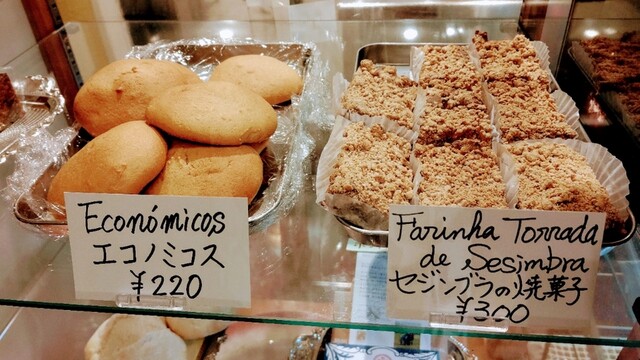 Económicos
エコノミコス
¥220
Farinha Torrada
de Sesimbra
セジンブラの焼菓子
¥300